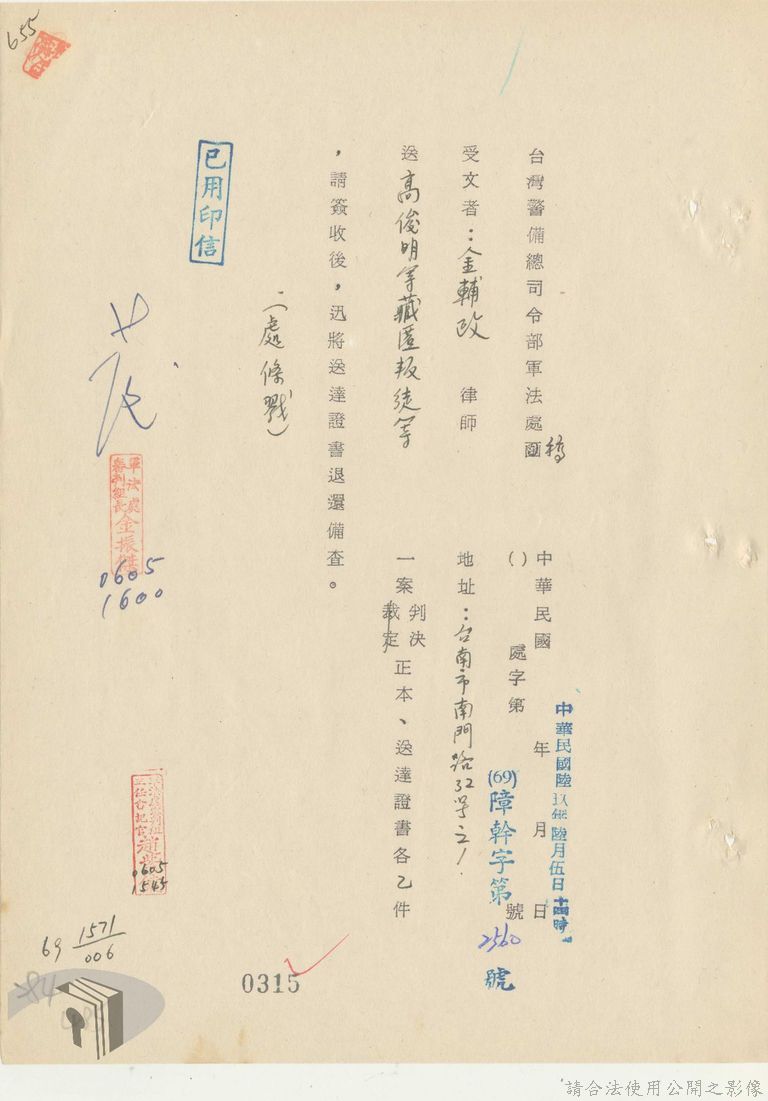 655
台灣警備總司令部軍法處函稿
中華民國 年 月 日
中華民國陸玖年陸月伍日十四時
( ) 處字第 號
(69)障幹字第2560號
受文者：金輔政 律師
地址：台南市南門路32号之1
送高俊明等藏匿叛徒等一案判決裁定正本、送達證書各乙件
，請簽收後，迅將送達證書退還備查。
(二處條戳)
已用印信
軍法處
審判組長 金振
0605
1600
0605
1545
69 1571
006
0315
請合法使用公開之影像